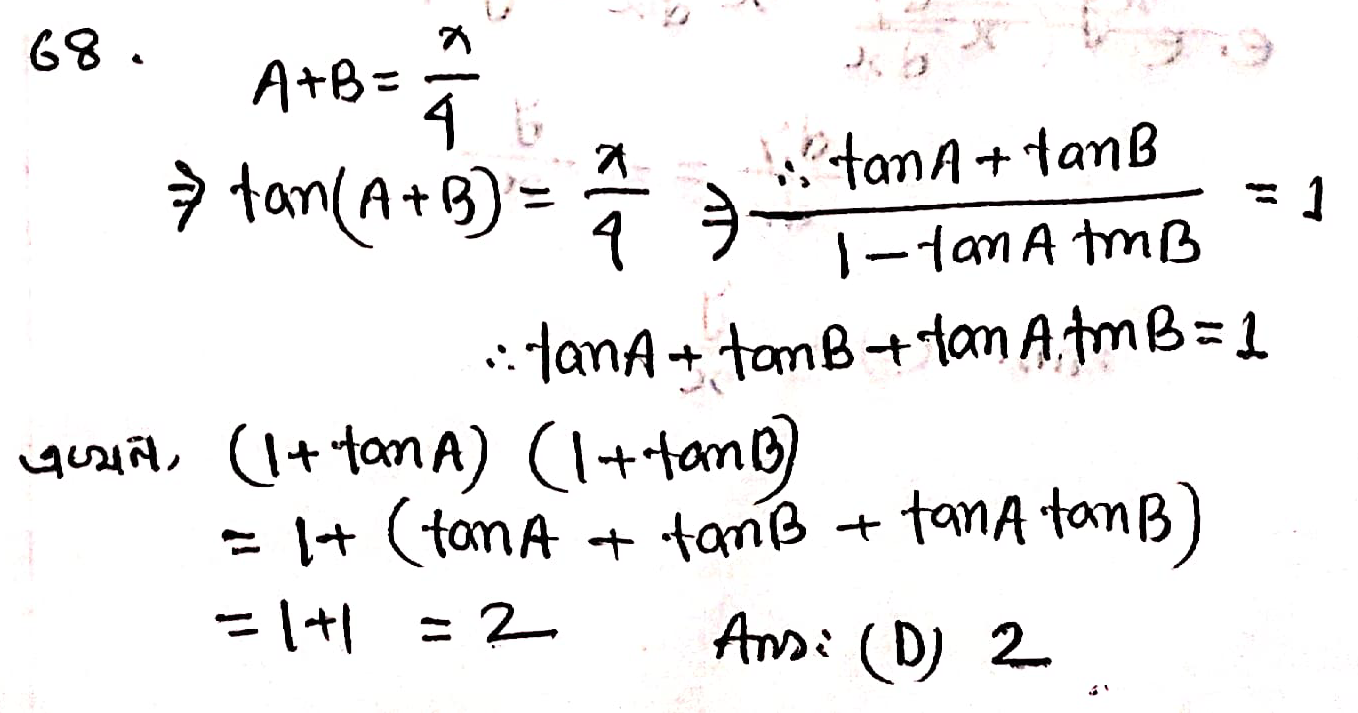 68. A+B = π/4
⇒ tan(A+B) = π/4 ⇒ ∴ (tanA + tanB)/(1 - tanA tanB) = 1
∴ tanA + tanB + tanA.tanB = 1
এখন, (1+tanA) (1+tanB)
= 1+ (tanA + tanB + tanA tanB)
= 1+1 = 2 Ans: (D) 2